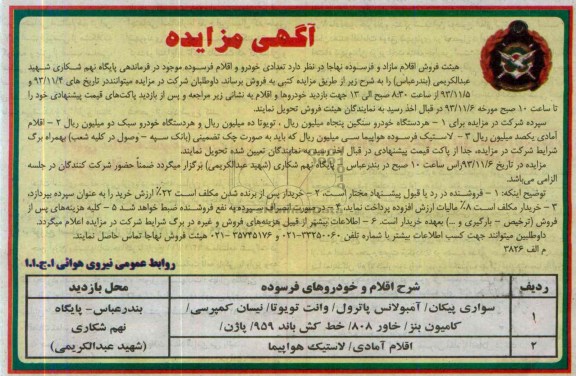 آگهی مزایده
هیئت فروش اقلام مازاد و فرسوده نهاجا در نظر دارد تعدادی خودرو و اقلام فرسوده موجود در فرماندهی پایگاه نهم شکاری شهید
عبدالکریمی (بندرعباس) را به شرح زیر از طریق مزایده کتبی به فروش برساند. داوطلبان شرکت در مزایده میتواننددر تاریخ های ۹۳/۱۱/۴ و
۹۳/۱۱/۵ از ساعت ۸:۳۰ صبح الی ۱۳ جهت بازدید خودروها و اقلام به نشانی زیر مراجعه و پس از بازدید پاکت‌های قیمت پیشنهادی خود را
تا ساعت ۱۰ صبح مورخه ۹۳/۱۱/۶ در قبال اخذ رسید به نمایندگان هیئت فروش تحویل نمایند.
سپرده شرکت در مزایده برای ۱ - هردستگاه خودرو سنگین پنجاه میلیون ریال ، تویوتا ده میلیون ریال و هردستگاه خودرو سبک دو میلیون ریال ۲ - اقلام
آمادی یکصد میلیون ریال ۳ - لاستیک فرسوده هواپیما سی میلیون ریال که باید به صورت چک تضمینی (بانک سپه - وصول در کلیه شعب) بهمراه برگ
شرایط شرکت در مزایده، جدا از پاکت قیمت پیشنهادی در قبال اخذ رسید به نمایندگان تعیین شده تحویل نمایند.
مزایده در تاریخ ۹۳/۱۱/۶راس ساعت ۱۰ صبح در بندرعباس - پایگاه نهم شکاری (شهید عبدالکریمی) برگزار میگردد ضمناً حضور شرکت کنندگان در جلسه
الزامی می‌باشد.
توضیح اینکه: ۱ - فروشنده در رد یا قبول پیشنهاد مختار است، ۲ - خریدار پس از برنده شدن مکلف است ۲۲٪ ارزش خرید را به عنوان سپرده بپردازد،
۳ - خریدار مکلف است ۸٪ مالیات ارزش افزوده پرداخت نماید، ۴ - در صورت انصراف سپرده به نفع فروشنده ضبط خواهد شد ۵ - کلیه هزینه‌های پس از
فروش (ترخیص - بارگیری و ...) بعهده خریدار است. ۶ - اطلاعات بیشتر از قبیل هزینه‌های فروش و غیره در برگ شرایط شرکت در مزایده اعلام میگردد.
داوطلبین میتوانند جهت کسب اطلاعات بیشتر با شماره تلفن ۳۳۲۵۰۰۶۰-۰۲۱ و ۳۵۷۴۵۱۷۶ -۰۲۱ هیئت فروش نهاجا تماس حاصل نمایند.
م الف ۳۸۲۶
روابط عمومی نیروی هوائی ا.ج.ا.ا
ردیف شرح اقلام و خودروهای فرسوده محل بازدید
۱ سواری پیکان/ آمبولانس پاترول/ وانت تویوتا/ نیسان کمپرسی/ کامیون بنز/ خاور ۸۰۸/ خط کش باند ۹۵۹/ پاژن/
۲ اقلام آمادی/ لاستیک هواپیما
بندرعباس- پایگاه
نهم شکاری
(شهید عبدالکریمی)